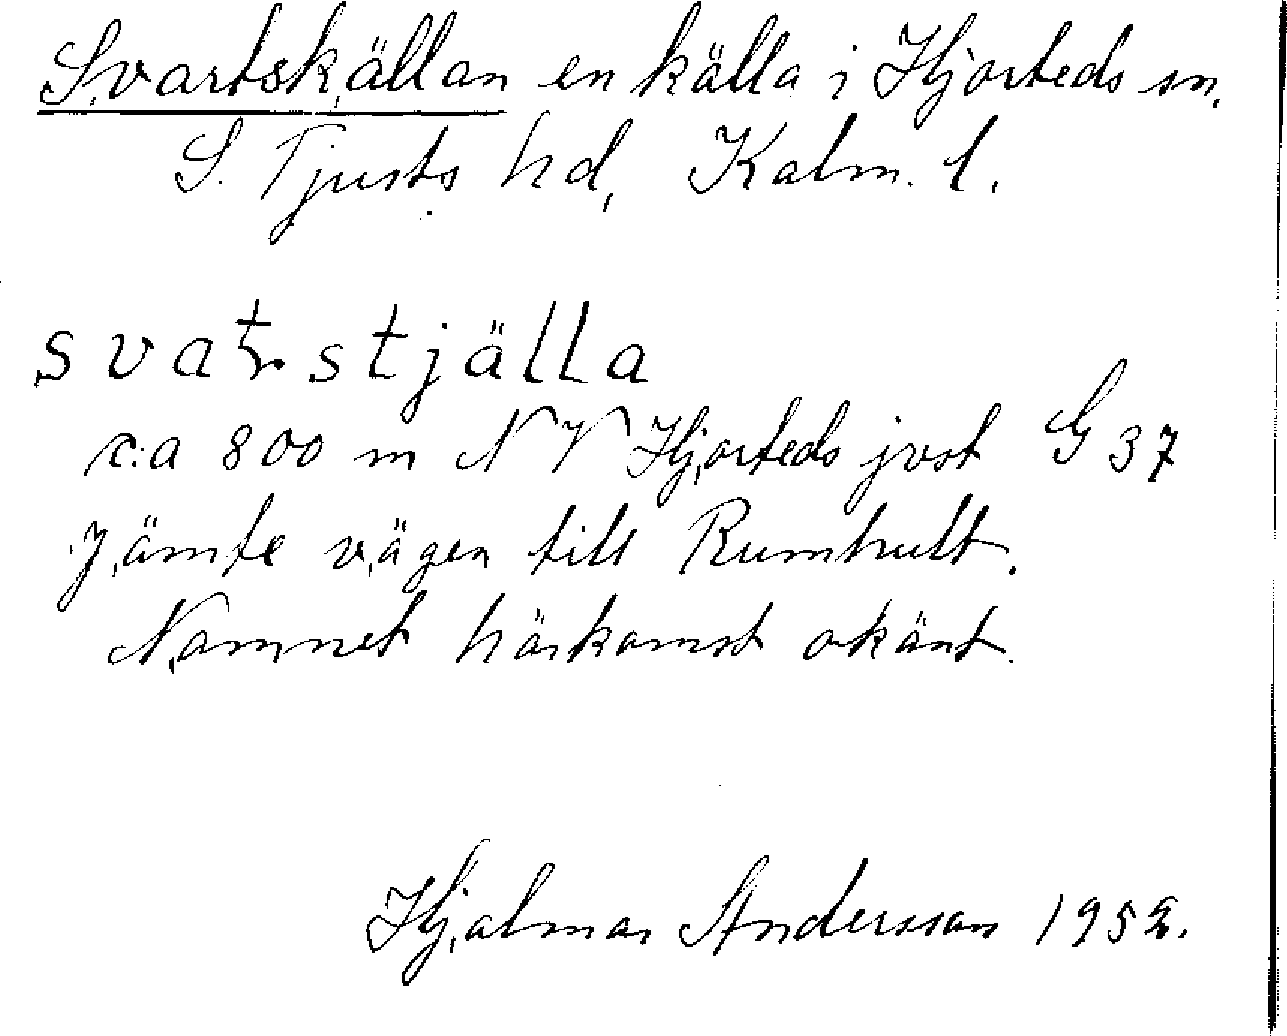 Svartskällan en källa i Hjorteds sn,
S. Tjusts hd, Kalm. l.
svatstjälla
c:a 800 m NV Hjorteds jvst G 37
jämte vägen till Rumhult.
Namnet härkomst okänt.
Hjalmar Andersson 1952.